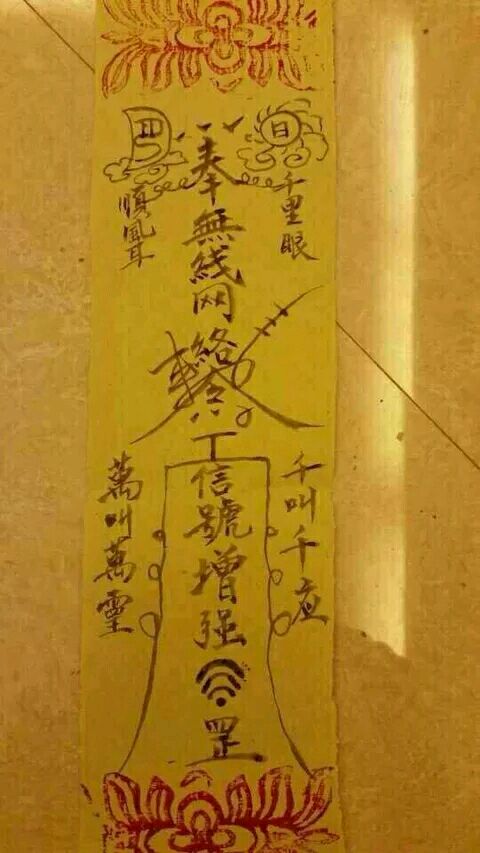 日
奉無線网络令
千里眼
順風耳
信號增强
罡
千叫千应
萬叫萬靈